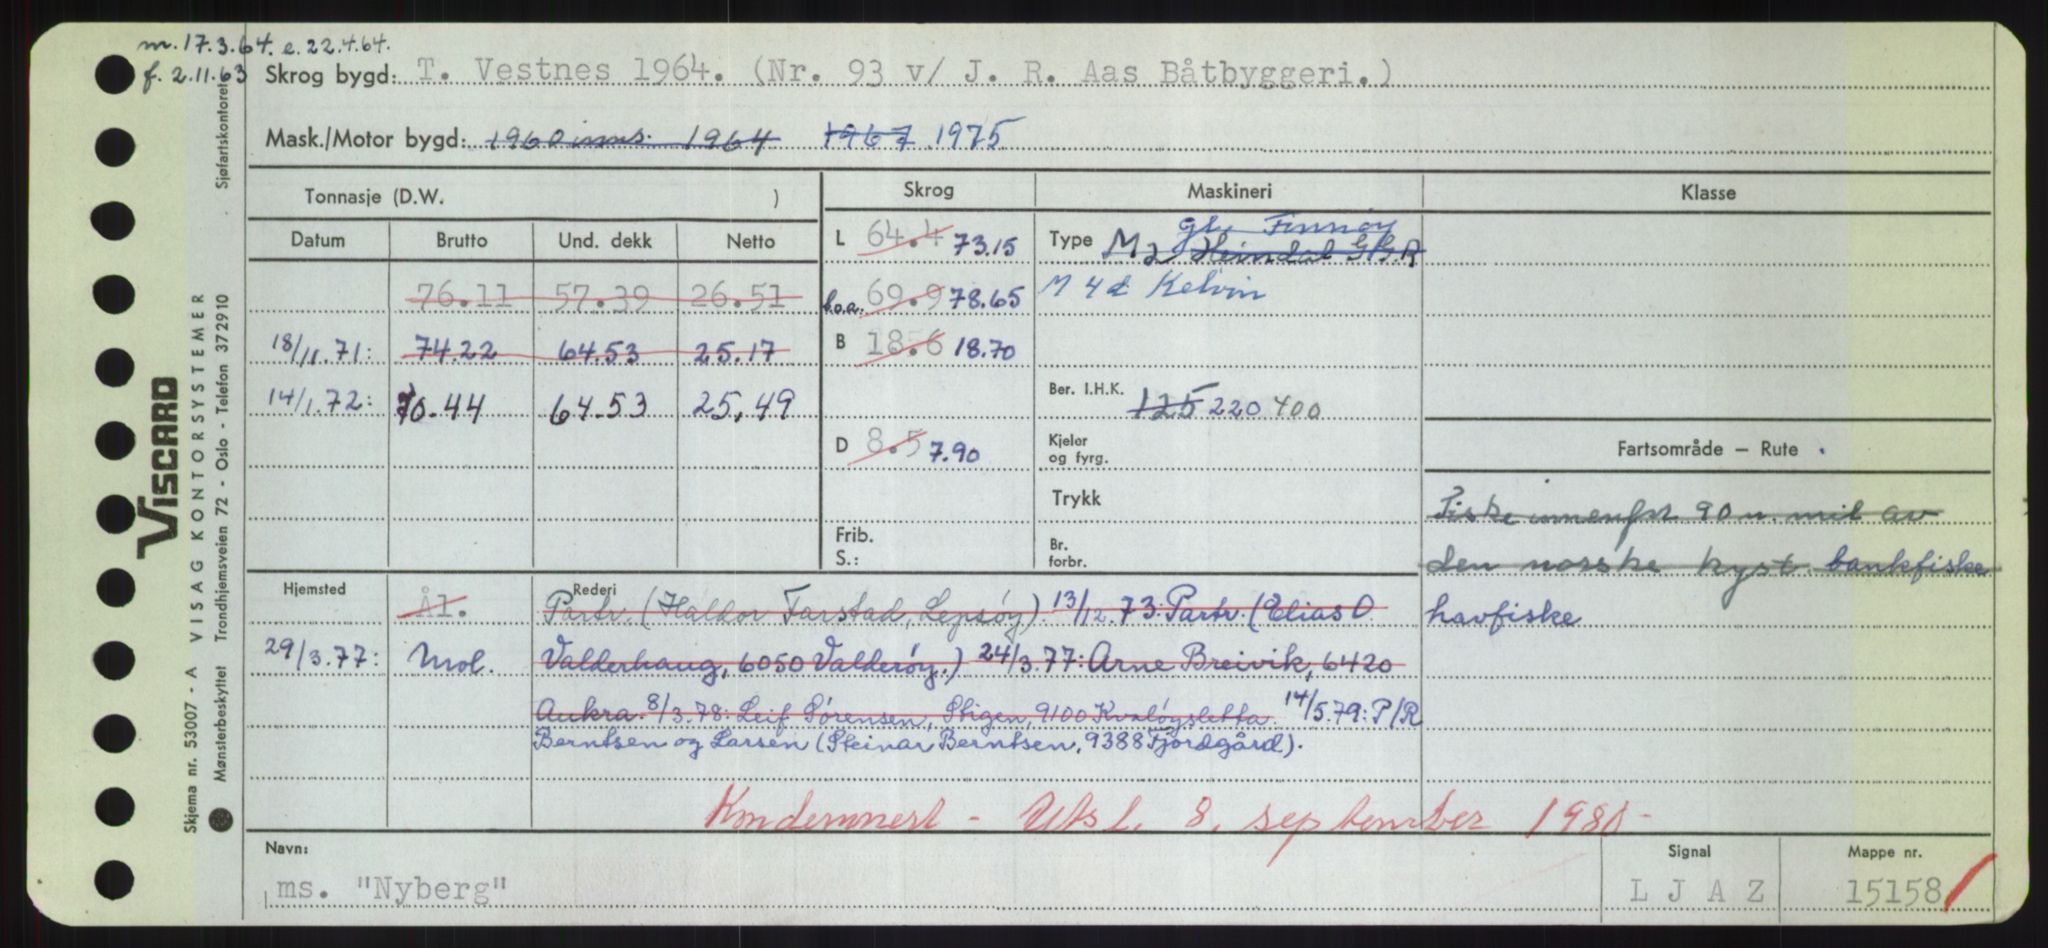 m. 17.3.64. e. 22.4.64.
f. 2.11.63
Skrog bygd: T. Vestnes 1964. (Nr. 93 v/ J. R. Aas Båtbyggeri.)
Mask./Motor bygd: 1960 inns. 1964 1967 1975
Tonnasje (D.W. )
Skrog
Maskineri
Klasse
Datum Brutto Und. dekk Netto
76.11 57.39 26.51
18/11.71: 74.22 64.53 25.17
14/1.72: 70.44 64.53 25,49
L 64.4 73.15
l.o.a. 69.9 78.65
B 18.6 18.70
D 8.5 7.90
Frib.
S.:
gl. Finnøy
Type M 2 Heimdal G.G.R
M 4d Kelvin
Ber. I.H.K. 125 220 400
Kjeler
og fyrg.
Trykk
Br.
forbr.
Fartsområde – Rute
Fiske innenfor 90 n. mil av
den norske kyst. bankfiske
havfiske
Hjemsted
Ål.
29/3.77: Mol.
Rederi
Partr. (Halkor Farstad, Lepsøy) 13/12.73: Partr. (Elias O
Valderhaug, 6050 Valderøy.) 24/3.77: Arne Breivik, 6420
Aukra. 8/3.78: Leif Sørensen, Stigen, 9100 Kvaløysletta. 14/5.79: P/R
Berntsen og Larsen (Steinar Berntsen, 9388 Fjordgård).
Kondemnert - Utsl. 8. september 1980-
Navn:
ms. "Nyberg"
Signal
L J A Z
Mappe nr.
15158
VISCARD
Skjema nr. 53007 - A VISAG KONTORSYSTEMER
Mønsterbeskyttet Trondhjemsveien 72 - Oslo - Telefon 372910 . Sjøfartskontoret